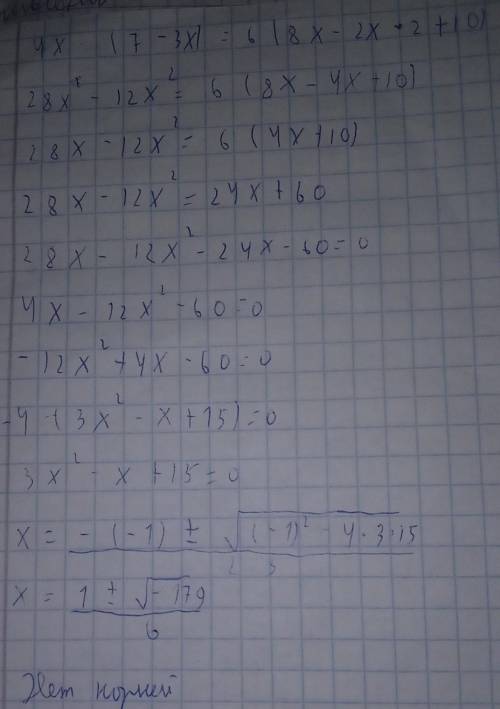 4x · (7 - 3x) = 6 (8x - 2x · 2 + 10)
28x² - 12x² = 6 (8x - 4x + 10)
28x - 12x² = 6 (4x + 10)
28x - 12x² = 24x + 60
28x - 12x² - 24x - 60 = 0
4x - 12x² - 60 = 0
-12x² + 4x - 60 = 0
-4 · (3x² - x + 15) = 0
3x² - x + 15 = 0
x = - (-1) ± √(-1)² - 4 · 3 · 15
2 · 3
x = 1 ± √-179
6
Нет корней